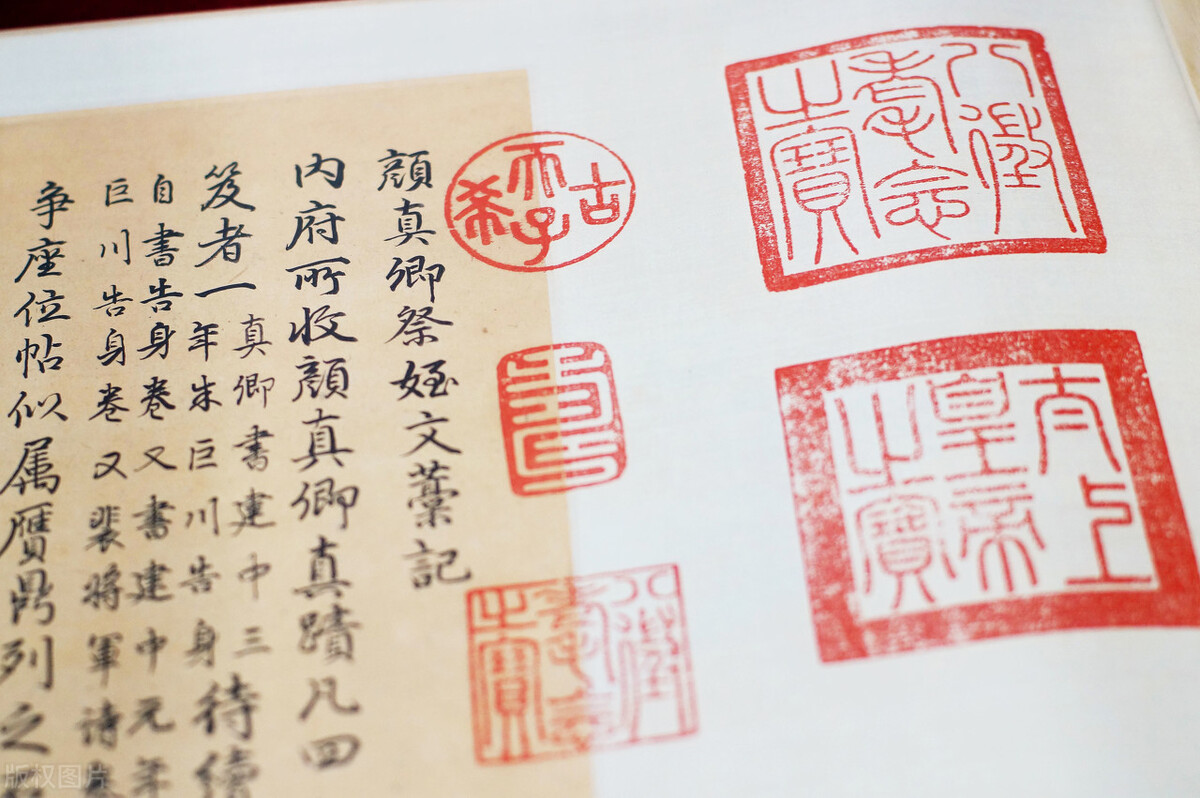 八徵耄念之寶
太上皇帝之寶
古希天子
壽
八徵耄念之寶
顔真卿祭姪文藁記
内府所收顔真卿真蹟凡四
笈者一真卿書建中三
年朱巨川告身待續
自書告身卷又書建中元年
巨川告身卷又裴將軍诗
争座位帖似属贋鼎列之
版权图片